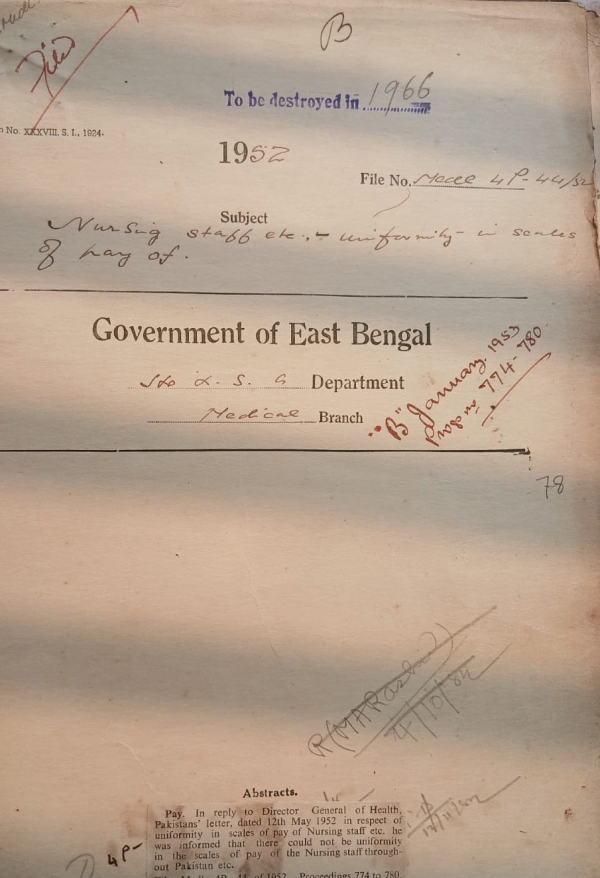 B
Filed
To be destroyed in 1966
No. XXXVIII. S. I., 1924.
1952
File No. Medl 4P-44/52
Subject
Nursing staff etc. - uniformity in scales
of pay of.
Government of East Bengal
H & L. S. G Department
Medical Branch
"B" January. 1953
Progs no 774-780.
78
R(MARashid)
4/10/82
Abstracts.
Pay. In reply to Director General of Health,
Pakistans' letter, dated 12th May 1952 in respect of
uniformity in scales of pay of Nursing staff etc. he
was informed that there could not be uniformity
in the scales of pay of the Nursing staff through-
out Pakistan etc.
4P-
44 of 1952. Proceedings 774 to 780.